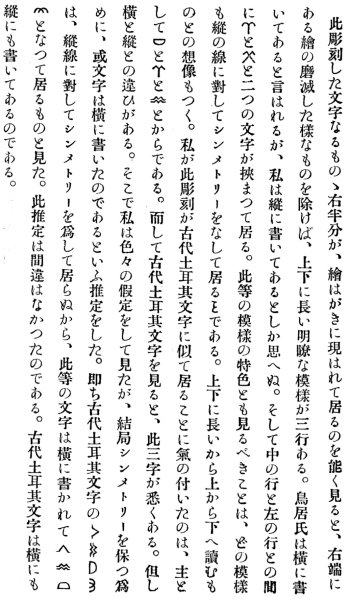 此彫刻した文字なるものゝ右半分が、繪はがきに現はれて居るのを能く見ると、右端に
ある繪の磨滅した樣なものを除けば、上下に長い明瞭な模樣が三行ある。鳥居氏は橫に書
いてあると言はれるが、私は縱に書いてあるとしか思へぬ。そして中の行と左の行との間
にとと二つの文字が挾まつて居る。此等の模樣の特色とも見るべきことは、どの模樣
も縱の線に對してシンメトリーをなして居るとである。上下に長いから上から下へ讀むも
のとの想像もつく。私が此彫刻が古代土耳其文字に似て居ることに氣の付いたのは、主と
してととからである。而して古代土耳其文字を見ると、此三字が悉くある。但し
橫と縱との違ひがある。そこで私は色々の假定をして見たが、結局シンメトリーを保つ爲
めに、或文字は橫に書いたのであるといふ推定をした。卽ち古代土耳其文字の
は、縱線に對してシンメトリーを爲して居らぬから、此等の文字は橫に書かれて
となつて居るものと見た。此推定は間違はなかつたのである。古代土耳其文字は橫にも
縱にも書いてあるのである。